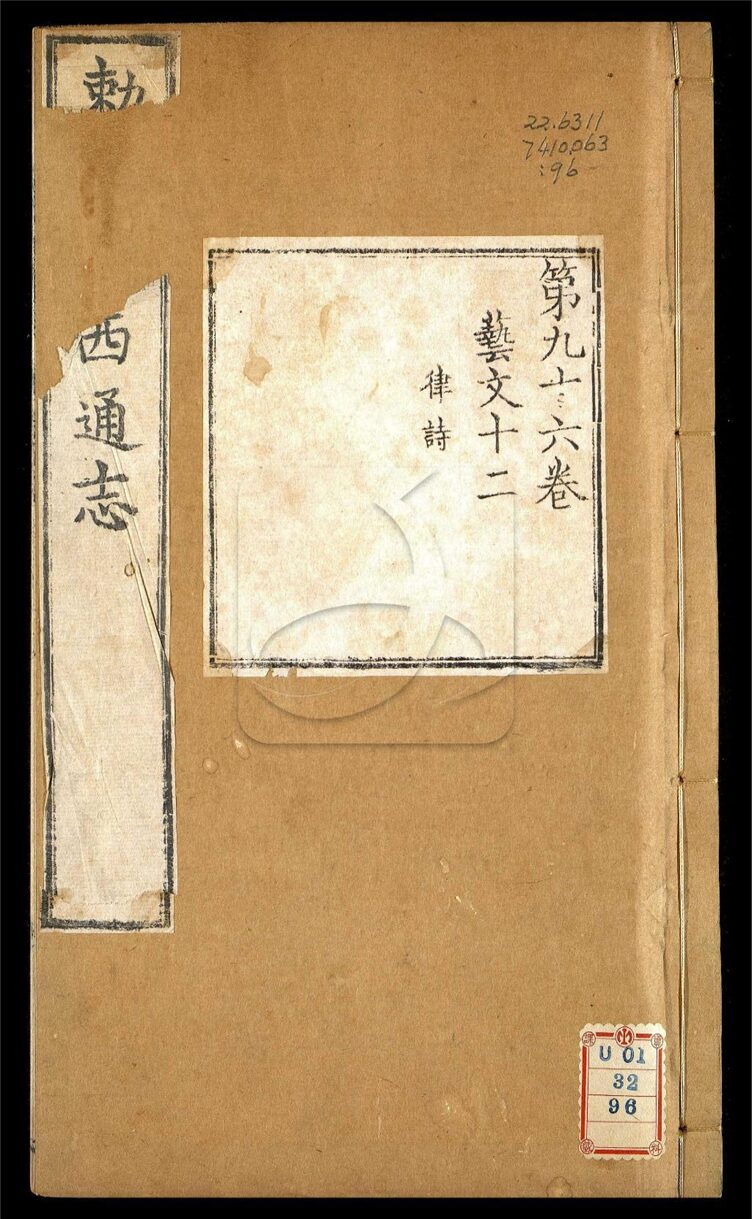 勅
西通志
第九十六卷
藝文十二
律詩
22.6311
7410.063
:96
U 01
32
96